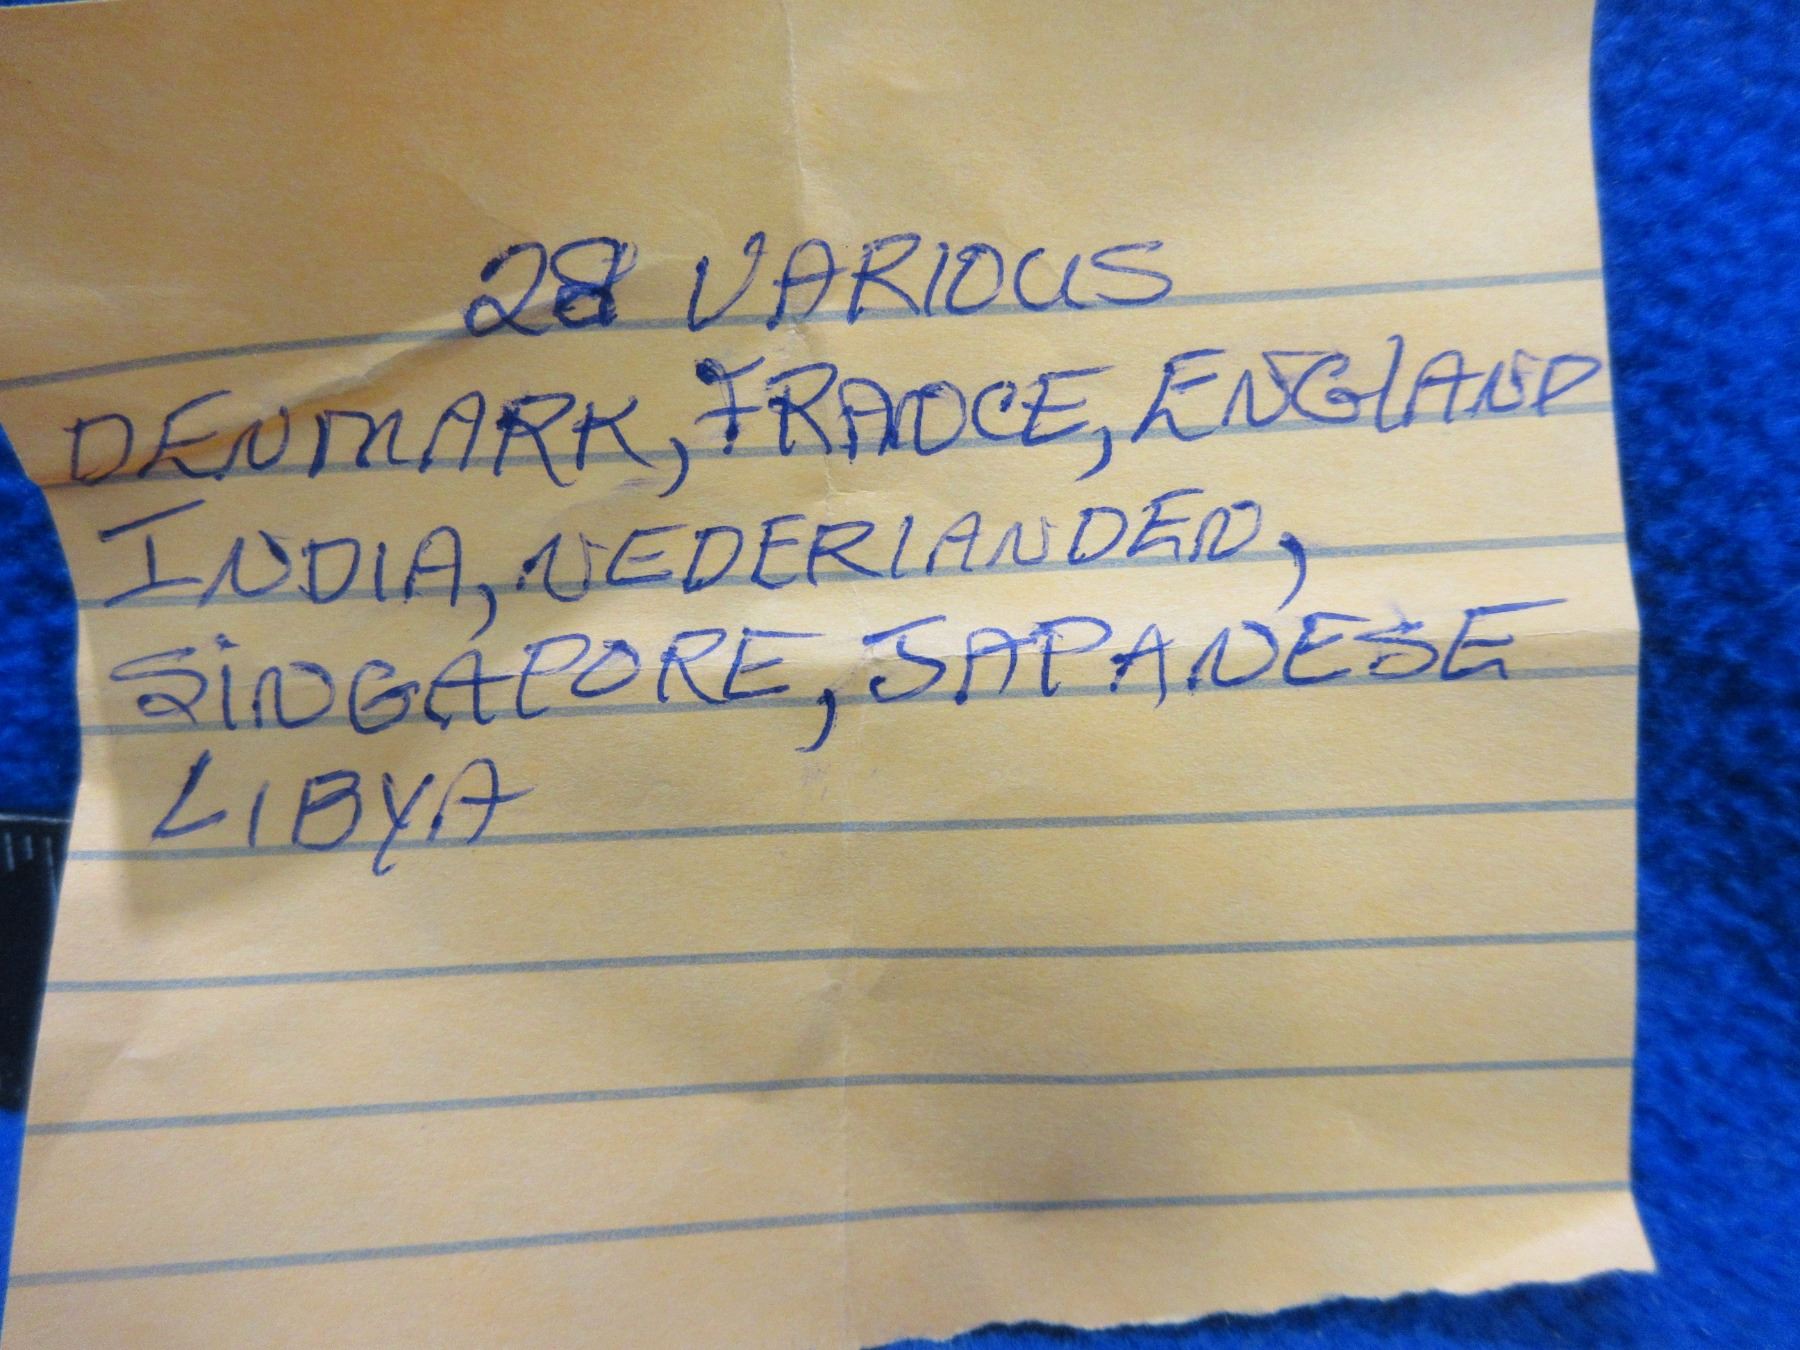 28 VARIOUS
DENMARK, FRANCE, ENGLAND
INDIA, NEDERLANDEN,
SiNGAPORE, JAPANESE
LIBYA